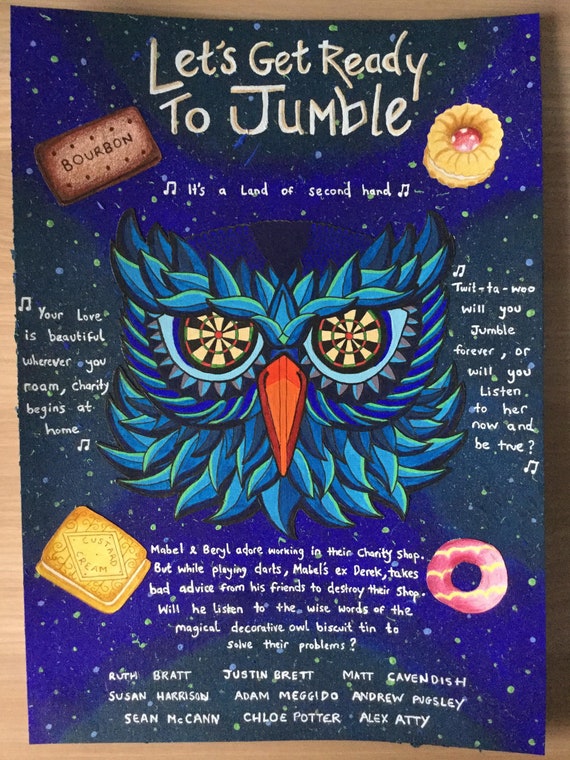 Let's Get Ready
To Jumble
BOURBON
♫ It's a Land of second hand ♫
♫
Your Love
is beautiful
wherever you
roam, charity
begins at
home
♫
♫
Twit-ta-woo
will you
Jumble
forever, or
will you
Listen
to her
now and
be true?
♫
CUSTARD
CREAM
Mabel & Beryl adore working in their Charity Shop.
But while playing darts, Mabel's ex Derek, takes
bad advice from his friends to destroy their Shop.
Will he listen to the wise words of the
magical decorative owl biscuit tin to
solve their problems?
RUTH BRATT JUSTIN BRETT MATT CAVENDISH
SUSAN HARRISON ADAM MEGGIDO ANDREW PUGSLEY
SEAN McCANN CHLOE POTTER ALEX ATTY